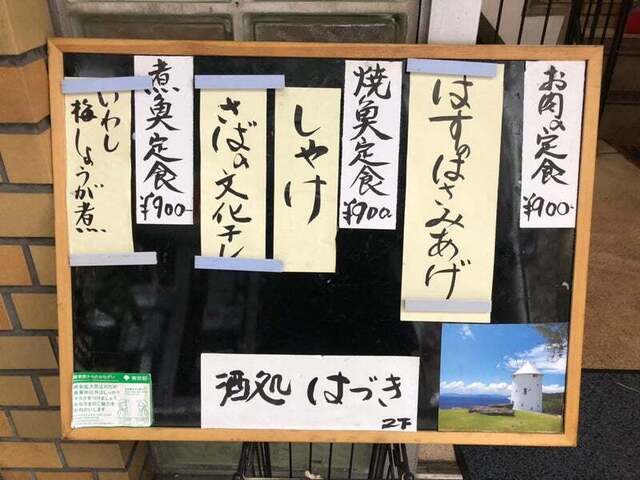 お肉の定食
¥900-
はすのはさみあげ
焼魚定食
¥900
しゃけ
さばの文化干し
煮魚定食
¥900-
いわし
梅しょうが煮
酒処 はづき
2F